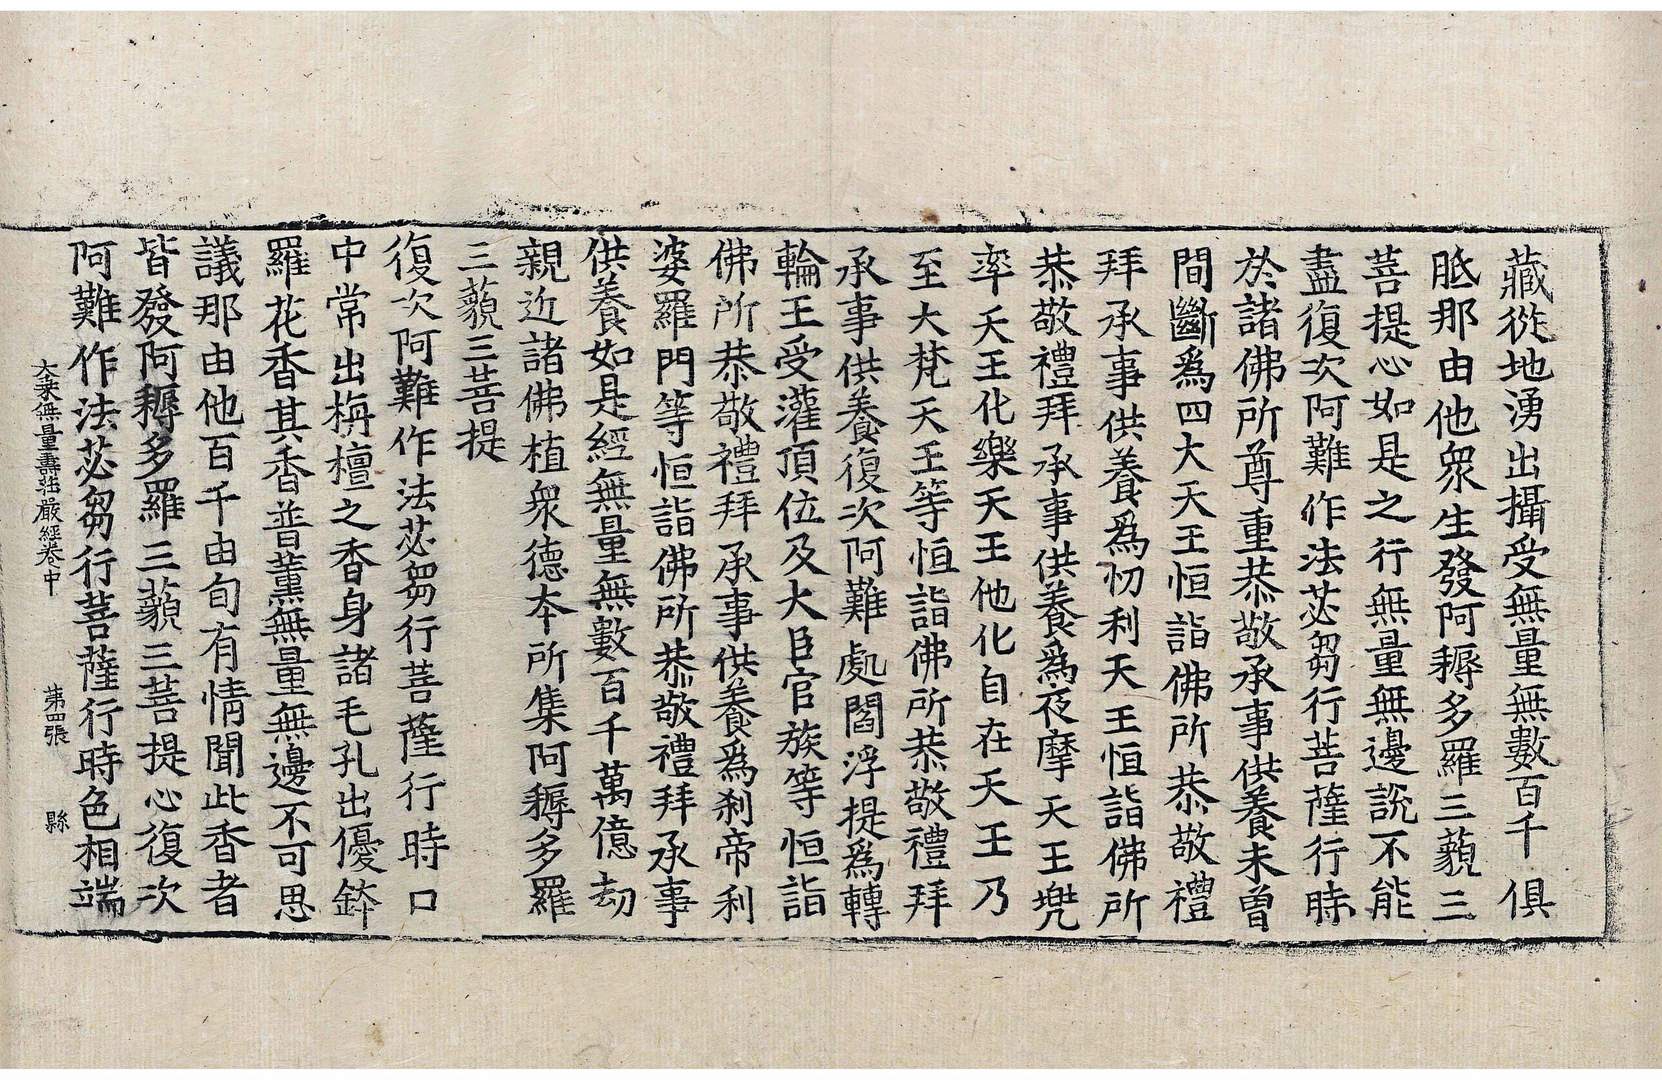 藏從地湧出攝受無量無數百千俱
胝那由他衆生發阿耨多羅三藐三
菩提心如是之行無量無邊說不能
盡復次阿難作法苾芻行菩薩行時
於諸佛所尊重恭敬承事供養未曾
間斷爲四大天王恒詣佛所恭敬禮
拜承事供養爲忉利天王恒詣佛所
恭敬禮拜承事供養爲夜摩天王兠
率天王化樂天王他化自在天王乃
至大梵天王等恒詣佛所恭敬禮拜
承事供養復次阿難處閻浮提爲轉
輪王受灌頂位及大臣官族等恒詣
佛所恭敬禮拜承事供養爲刹帝利
婆羅門等恒詣佛所恭敬禮拜承事
供養如是經無量無數百千萬億劫
親近諸佛植衆德本所集阿耨多羅
三藐三菩提
復次阿難作法苾芻行菩薩行時口
中常出栴檀之香身諸毛孔出優鉢
羅花香其香普薰無量無邊不可思
議那由他百千由旬有情聞此香者
皆發阿耨多羅三藐三菩提心復次
阿難作法苾芻行菩薩行時色相端
大乘無量壽莊嚴經卷中 第四張 縣